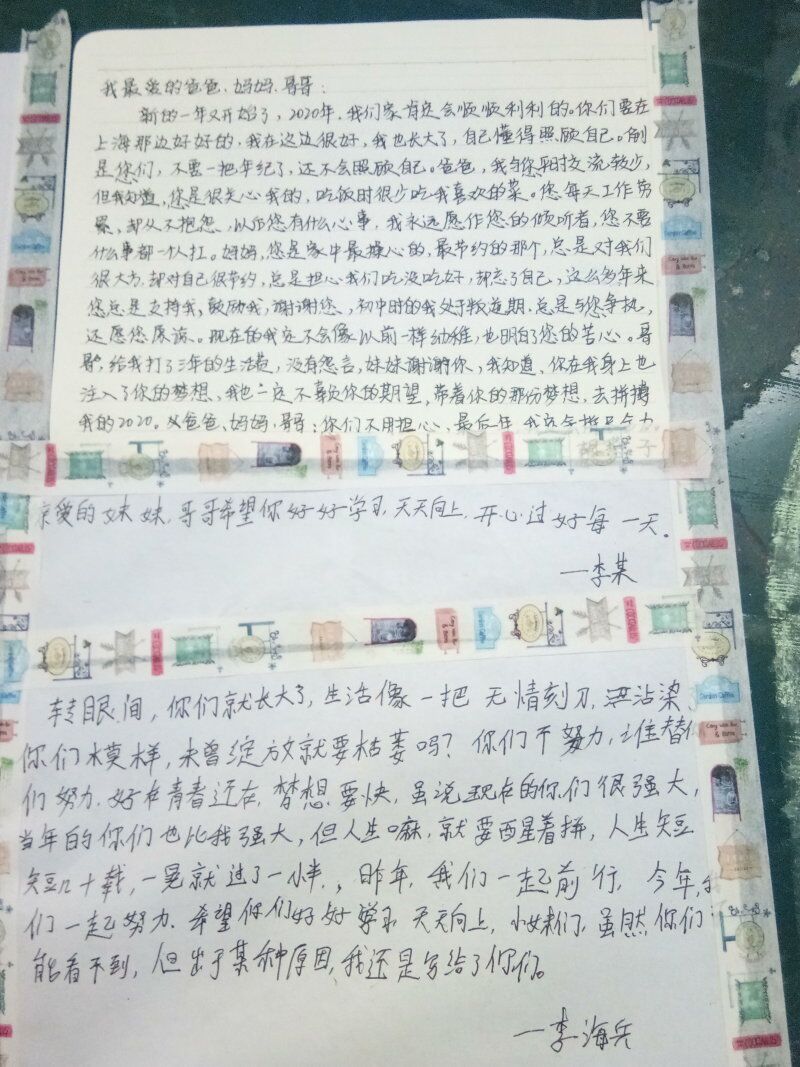 我最爱的爸爸、妈妈、哥哥：
新的一年又开始了，2020年，我们家肯定会顺顺利利的。你们要在
上海那边好好的，我在这边很好，我也长大了，自己懂得照顾自己。倒
是您们，不要一把年纪了，还不会照顾自己。爸爸，我与您平时交流较少，
但我知道，您是很关心我的，吃饭时很少吃我喜欢的菜。您每天工作劳
累，却从不抱怨，以后您有什么心事，我永远愿作您的倾听者，您不要
什么事都一个人扛。妈妈，您是家中最操心的，最节约的那个，总是对我们
很大方，却对自己很节约，总是担心我们吃没吃好，却忘了自己，这么多年来
您总是支持我，鼓励我，谢谢您、初中时的我处于叛逆期，总是与您争执，
还愿您原谅。现在的我定不会像以前一样幼稚，也明白了您的苦心。哥
哥，给我打了三年的生活费，没有怨言，妹妹谢谢你，我知道，你在我身上也
注入了你的梦想，我也一定不辜负你的期望，带着你的那份梦想，去拼搏
我的2020。爸爸、妈妈、哥哥：你们不用担心，最后
亲爱的妹妹，哥哥希望你好好学习，天天向上，开心过好每一天。
—李某
转眼间，你们就长大了，生活像一把无情刻刀，沾染
你们模样，未曾绽放就要枯萎吗？你们不努力，谁替你
们努力，好在青春还在，梦想要快，虽说现在的你们很强大，
当年的你们也比我强大，但人生嘛，就要醒着拼，人生短
短几十载，一晃就过了一小半，昨年，我们一起前行，今年，我
们一起努力，希望你们好好学习天天向上，小妹们，虽然你们
能看不到，但出于某种原因，我还是写给了你们。
—李海兵